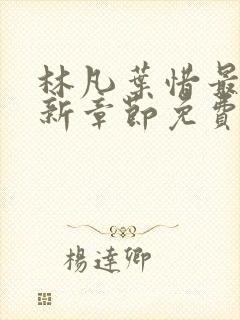 林凡葉惜最
新章節免費
楊達卿